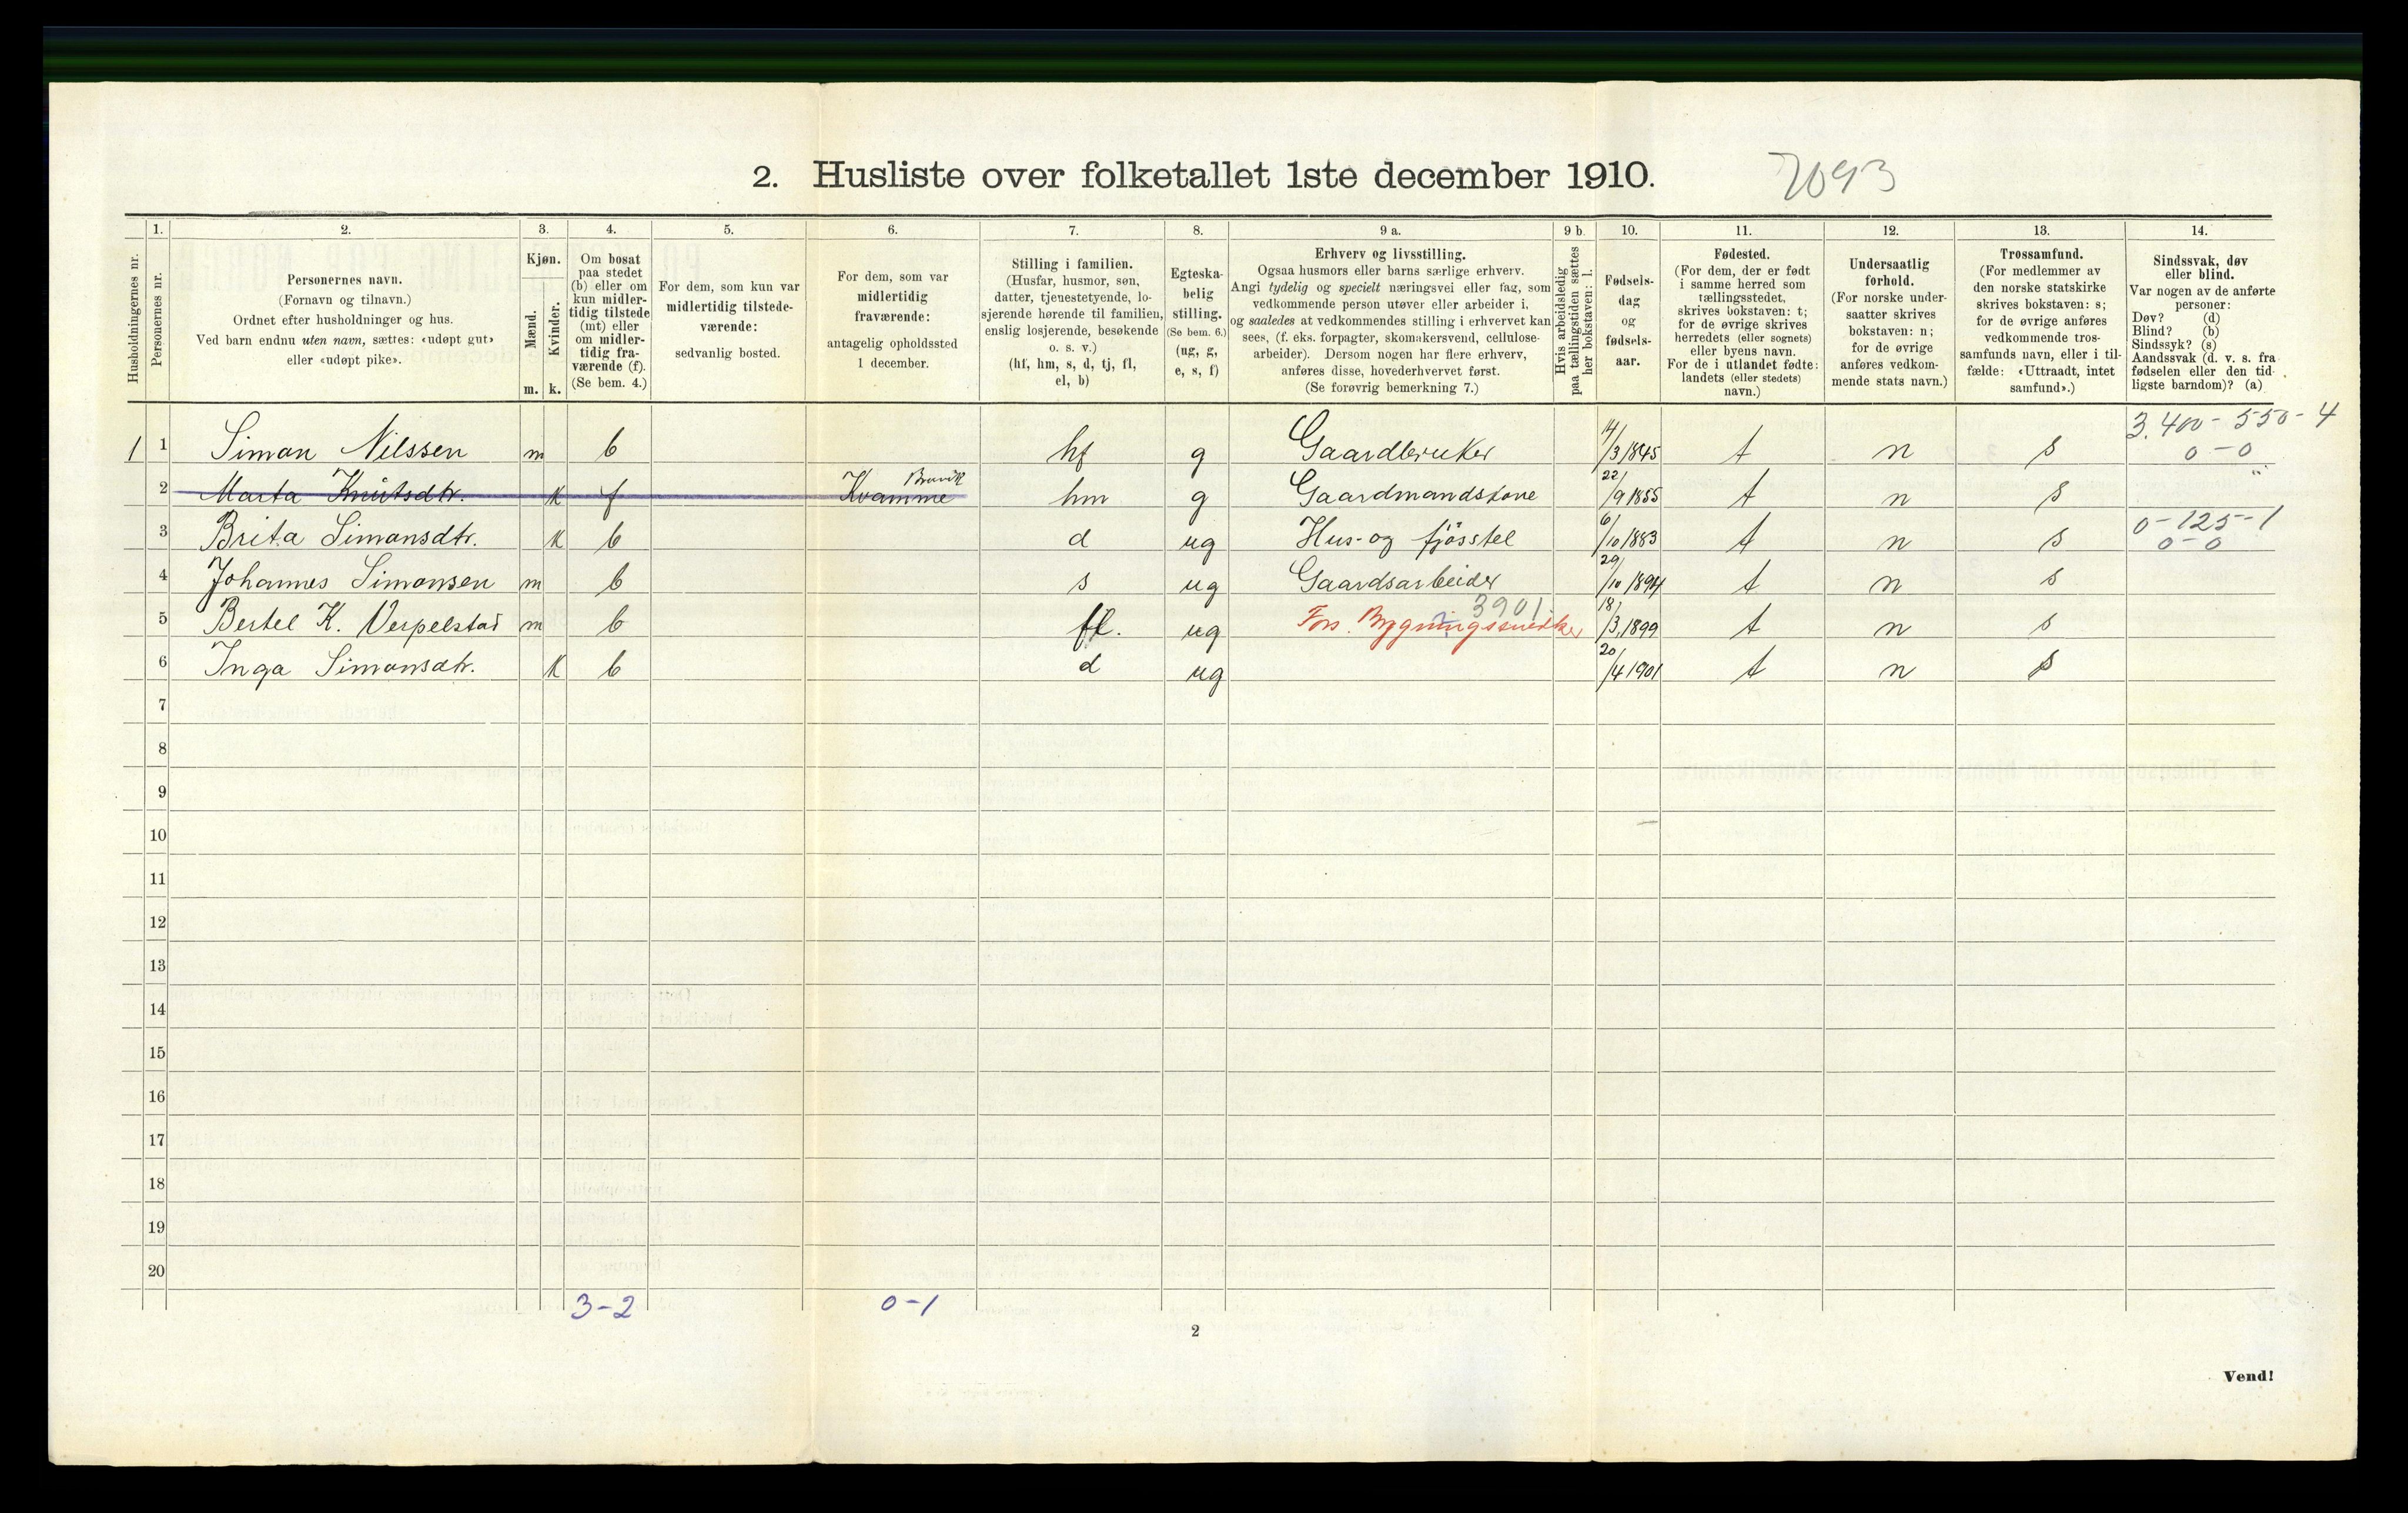 2. Husliste over folketallet 1ste december 1910.
7093
Husholdningernes nr.
1.
Personernes nr.
2.
Personernes navn.
(Fornavn og tilnavn.)
Ordnet efter husholdninger og hus.
Ved barn endnu uten navn, sættes: «udøpt gut»
eller «udøpt pike».
3.
Kjøn.
Mænd.
Kvinder.
m.
k.
4.
Om bosat
paa stedet
(b) eller om
kun midler-
tidig tilstede
(mt) eller
om midler-
tidig fra-
værende (f).
(Se bem. 4.)
5.
For dem, som kun var
midlertidig tilstede-
værende:
sedvanlig bosted.
6.
For dem, som var
midlertidig
fraværende:
antagelig opholdssted
1 december.
7.
Stilling i familien.
(Husfar, husmor, søn,
datter, tjenestetyende, lo-
sjerende hørende til familien,
enslig losjerende, besøkende
o. s. v.)
(hf, hm, s, d, tj, fl,
el, b)
8.
Egteska-
belig
stilling.
(Se bem. 6.)
(ug, g,
e, s, f)
9 a.
Erhverv og livsstilling.
Ogsaa husmors eller barns særlige erhverv.
Angi tydelig og specielt næringsvei eller fag, som
vedkommende person utøver eller arbeider i,
og saaledes at vedkommendes stilling i erhvervet kan
sees, (f. eks. forpagter, skomakersvend, cellulose-
arbeider). Dersom nogen har flere erhverv,
anføres disse, hovederhvervet først.
(Se forøvrig bemerkning 7.)
9 b.
Hvis arbeidsledig
paa tællingstiden sættes
her bokstaven: l.
10.
Fødsels-
dag
og
fødsels-
aar.
11.
Fødested.
(For dem, der er født
i samme herred som
tællingsstedet,
skrives bokstaven: t;
for de øvrige skrives
herredets (eller sognets)
eller byens navn.
For de i utlandet fødte:
landets (eller stedets)
navn.)
12.
Undersaatlig
forhold.
(For norske under-
saatter skrives
bokstaven: n;
for de øvrige
anføres vedkom-
mende stats navn.)
13.
Trossamfund.
(For medlemmer av
den norske statskirke
skrives bokstaven: s;
for de øvrige anføres
vedkommende tros-
samfunds navn, eller i til-
fælde: «Uttraadt, intet
samfund».)
14.
Sindssvak, døv
eller blind.
Var nogen av de anførte
personer:
Døv? (d)
Blind? (b)
Sindssyk? (s)
Aandssvak (d. v. s. fra
fødselen eller den tid-
ligste barndom)? (a)
3.400-550-4
1 1 Simon Nilssen m b hf g Gaardbruker 14/3 1845 t n s 0-0
2 Marta Knutsdtr. k f Kvamme hm g Gaardmandskone 22/9 1855 t n s
0-125-1
3 Brita Simonsdtr. k b d ug Hus- og fjøsstel 6/10 1883 t n s 0-0
4 Johannes Simonsen m b s ug Gaardsarbeider 29/10 1894 t n s
3901
5 Bertel K. Verpelstad m b fl. ug Fors. Bygningssnedker 18/3 1899 t n s
6 Inga Simonsdtr. k b d ug 20/4 1901 t n s
7
8
9
10
11
12
13
14
15
16
17
18
19
20
3-2 0-1
2
Vend!